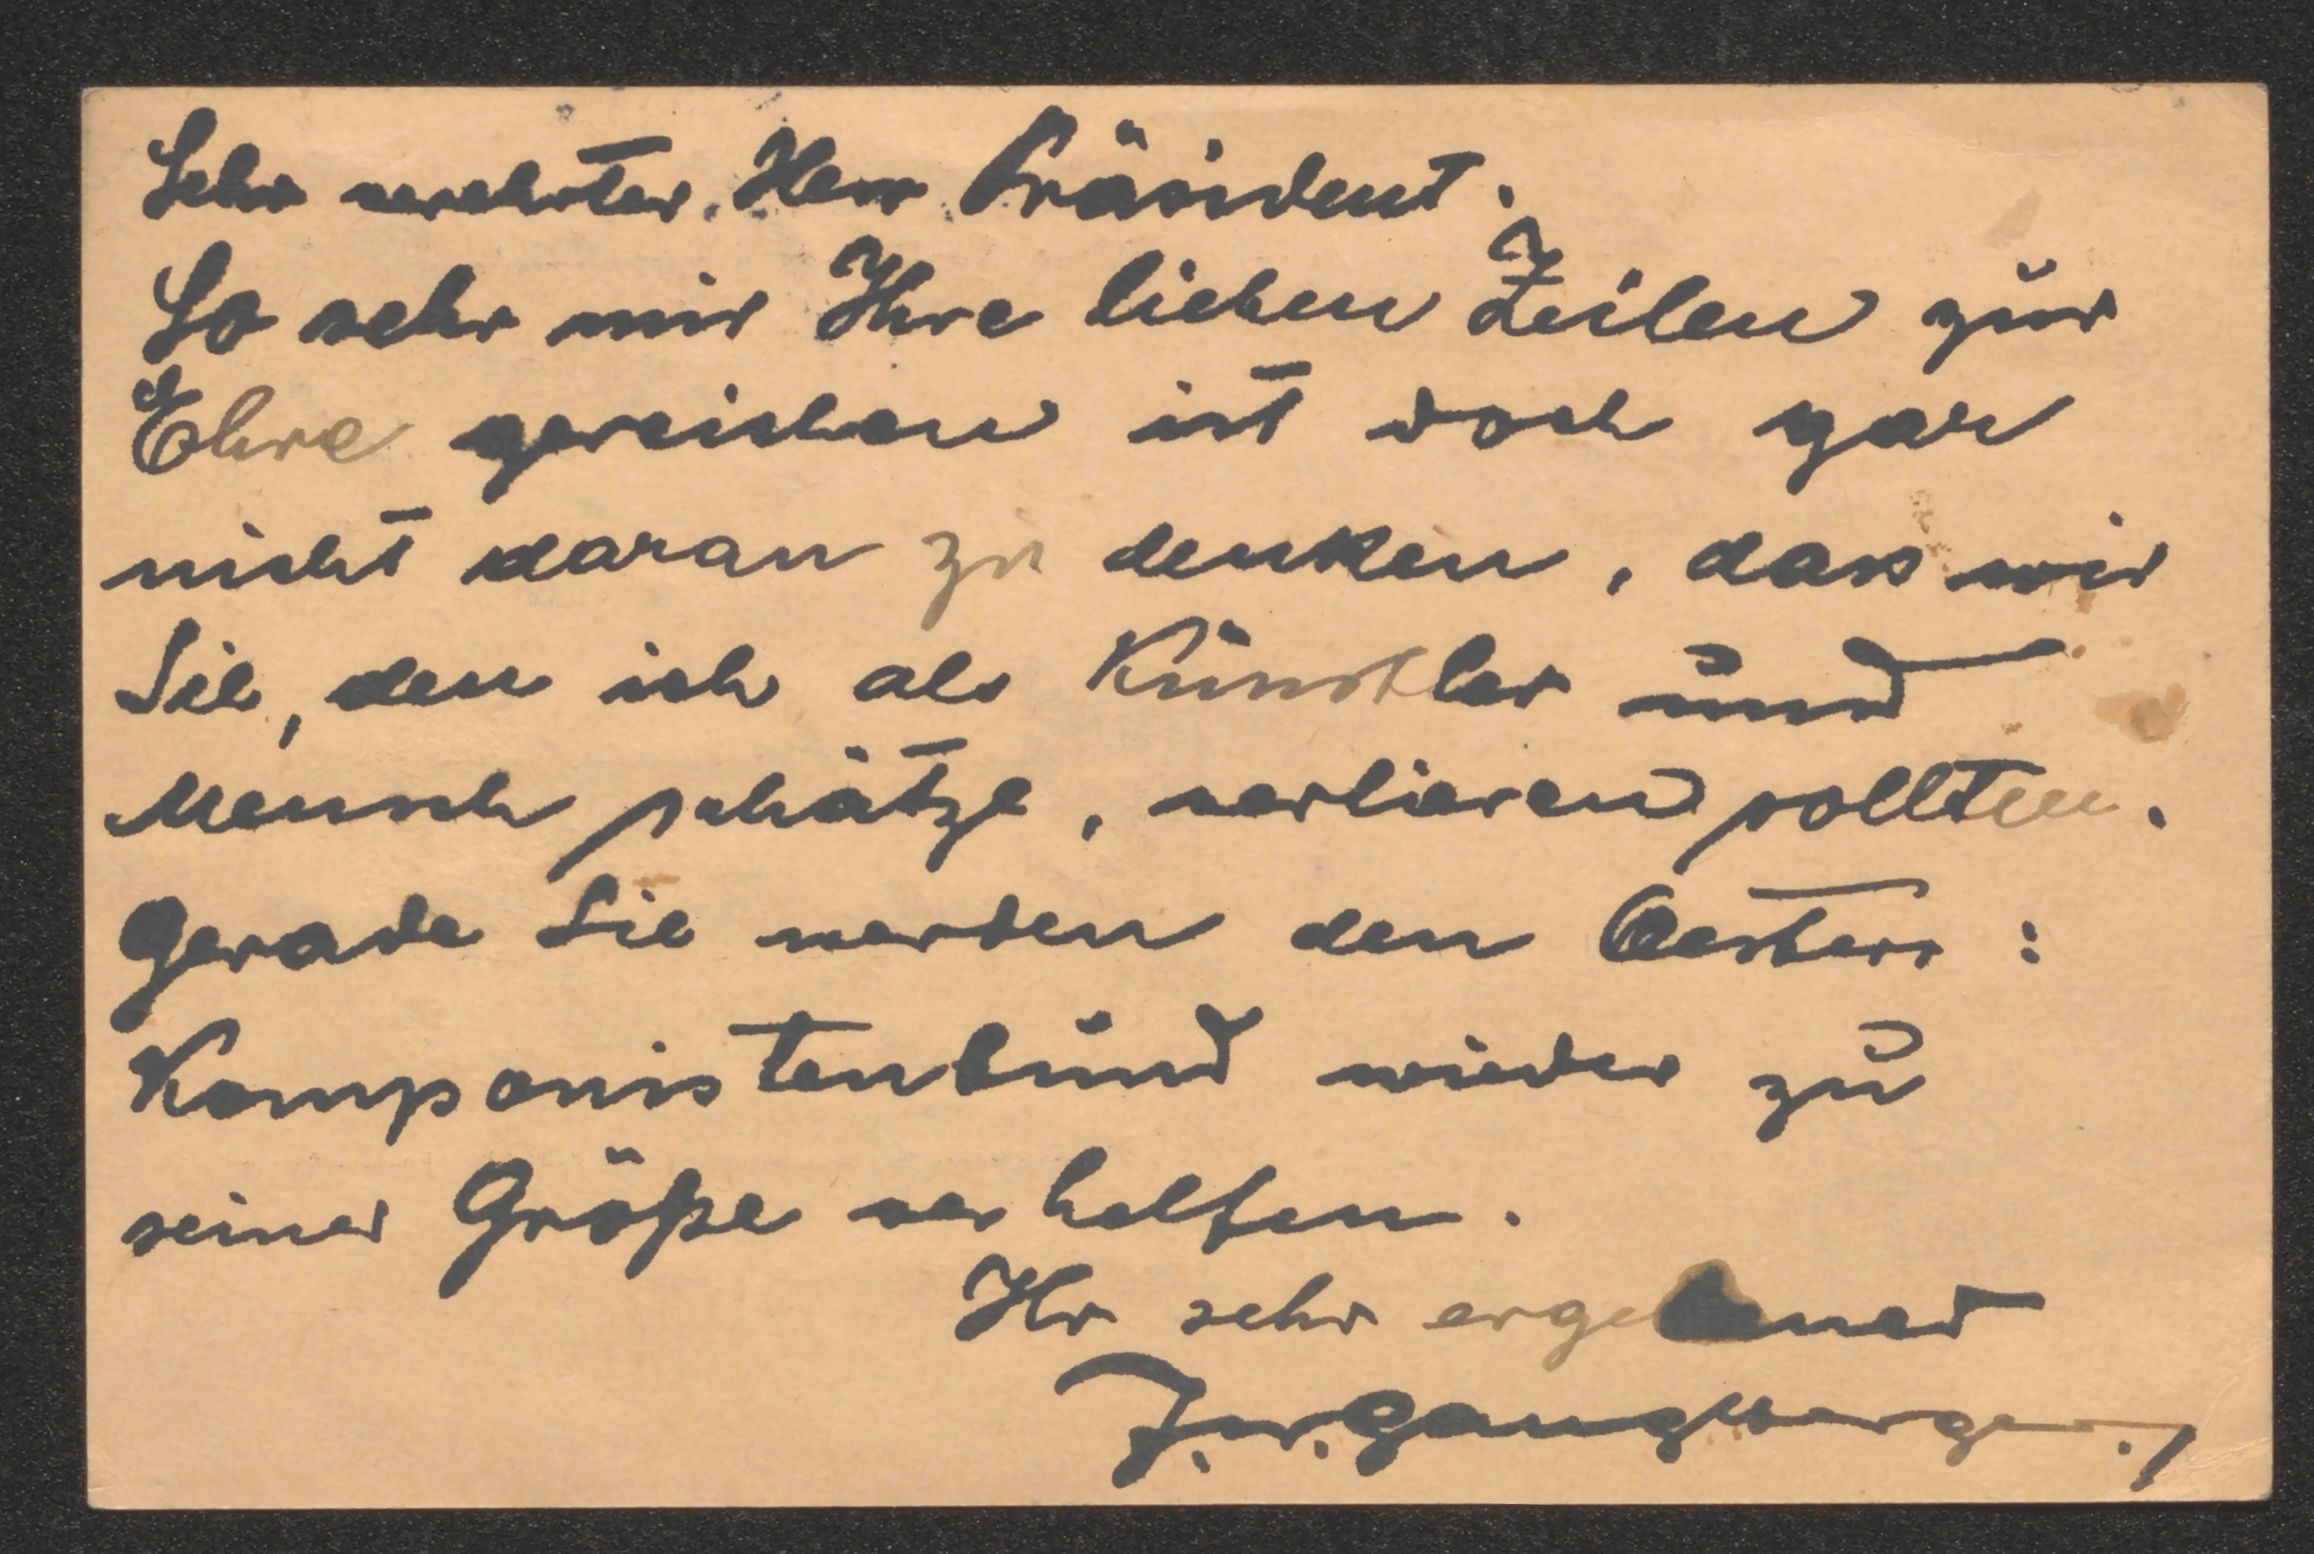 Sehr verehrter Herr Präsident.
So sehr mir Ihre lieben Zeilen zur
Ehre gereichen ist doch gar
nicht daran zu denken, dass wir
Sie, den ich als Künstler und
Mensch schätze, verlieren sollten.
Gerade Sie werden den Oesterr:
Komponistenbund wieder zu
seiner Größe verhelfen.
Ihr sehr ergebener
J.W. Ganglberger